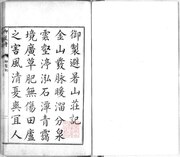 御製避暑山莊記
金山發脉暖溜分泉
雲壑渟泓石潭青靄
境廣草肥無傷田廬
之害風清夏爽宜人